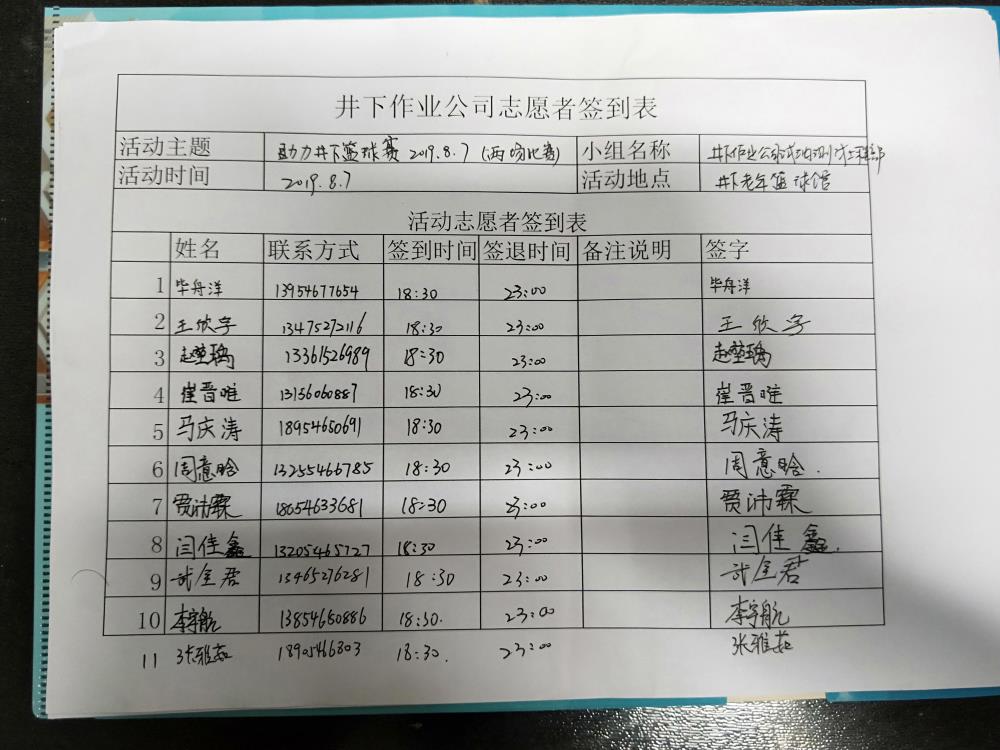 井下作业公司志愿者签到表
活动主题 助力井下篮球赛 2019.8.7 (两场比赛) 小组名称 井下作业公司试油测试工程部
活动时间 2019.8.7 活动地点 井下老年篮球馆
活动志愿者签到表
姓名 联系方式 签到时间 签退时间 备注说明 签字
1 毕舟洋 13954677654 18:30 23:00 毕舟洋
2 王欣宇 13475272116 18:30 23:00 王欣宇
3 赵堃瑀 13361526989 18:30 23:00 赵堃瑀
4 崔晋唯 13156060887 18:30 23:00 崔晋唯
5 马庆涛 18954650691 18:30 23:00 马庆涛
6 周意晗 13255466785 18:30 23:00 周意晗.
7 贾沛霖 18654633681 18:30 23:00 贾沛霖
8 闫佳鑫 13205465727 18:30 23:00 闫佳鑫.
9 武全君 13465276281 18:30 23:00 武全君
10 李宇航 13854650886 18:30. 23:00 李宇航
11 张雅茹 18905466803 18:30. 23:00 张雅茹